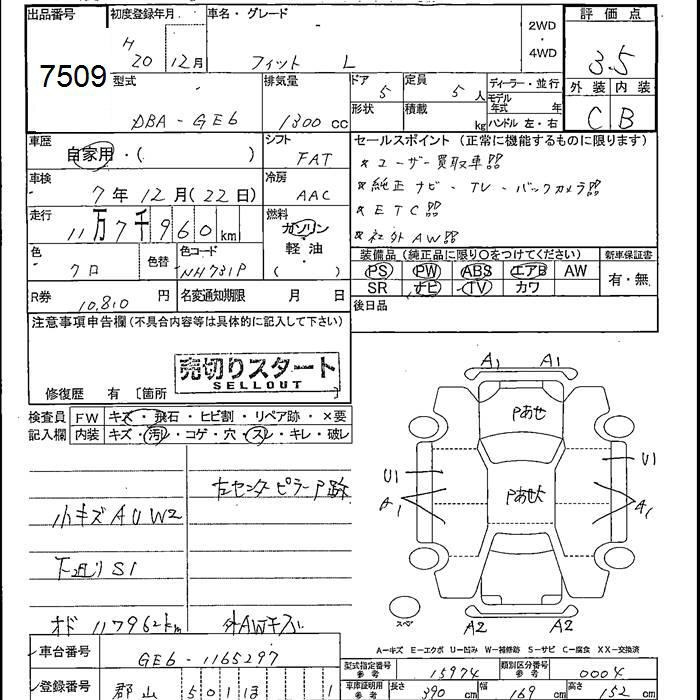 出品番号 初度登録年月 車名・グレード 2WD・4WD 評価点
7509 H 20 12月 フィット L 3.5
型式 排気量 ドア 定員 ディーラー・並行 外装 内装
DBA-GE6 1300 cc 5 5人 モデル年式 年 C B
形状 積載 kg ハンドル 左・右
車歴 シフト セールスポイント(正常に機能するものに限ります)
自家用・( ) FAT *ユーザー買取車!!
車検 冷房 *純正ナビ・TV・バックカメラ!!
7年 12月(22日) AAC *ETC!!
走行 燃料 *社外AW!!
11万7千960km ガソリン・軽油・( )
色 色替 色コード 装備品(純正品に限り○をつけてください) 新車保証書
クロ NH731P PS PW ABS エアB AW 有・無
SR ナビ TV カワ
R券 名変通知期限 月 日 後日品
10,810円
注意事項申告欄(不具合内容等は具体的に記入して下さい)
売切りスタート
SELLOUT
修復歴 有〔箇所
検査員記入欄 FW キズ・飛石・ヒビ割・リペア跡・×要
内装 キズ・汚・コゲ・穴・スレ・キレ・破レ
左センターピラーP跡
小キズAUW2
下廻りS1
オド 117962km 外AWキズ
A1 A1
Pあせ
U1 U1
A1 Pあせ大 A1
スペア A2 A2
A-キズ E-エクボ U-凹み W-補修跡 S-サビ C-腐食 XX-交換済
車台番号 GE6-1165297
型式指定番号 参考 15974 類別区分番号 参考 0004
登録番号 郡山 501 ほ 1
車庫証明用 参考 長さ 390cm 幅 169cm 高さ 152cm